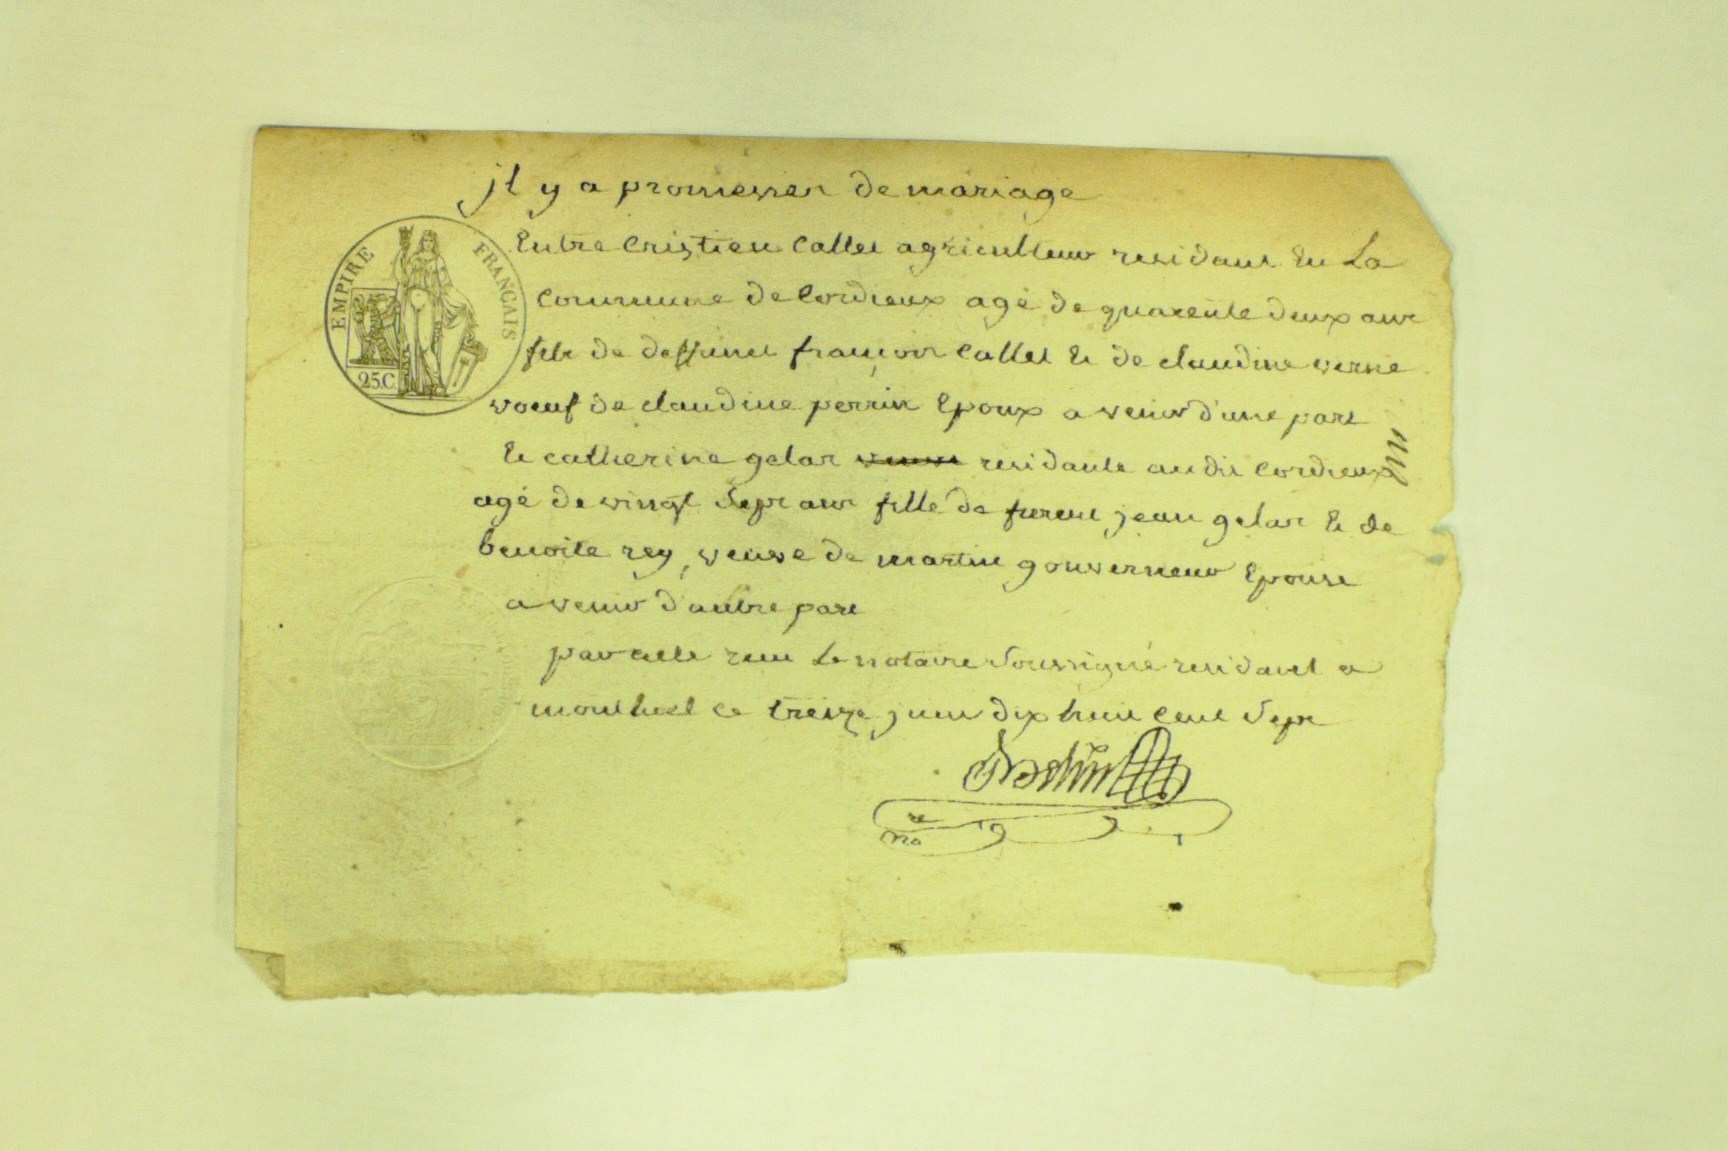 jl y a promesses de mariage
EMPIRE FRANÇAIS
25.C.
Entre Cristien Callet agriculteur residant En La
Commune de Cordieux agé de quarente deux ans
fils de deffunct françois Callet Et de claudine verne
voeuf de claudine perrin Epoux a venir d'une part
Et catherine gelas residante au dit Cordieux
agé de vingt Sept ans fille de jean gelas Et de
benoite rey, veuve de martin gouverneur Epouse
a venir d'autre part
par acte reçu Le notaire Soussigné residant a
montluel ce treize juin dix huit Cent Sept
re
no